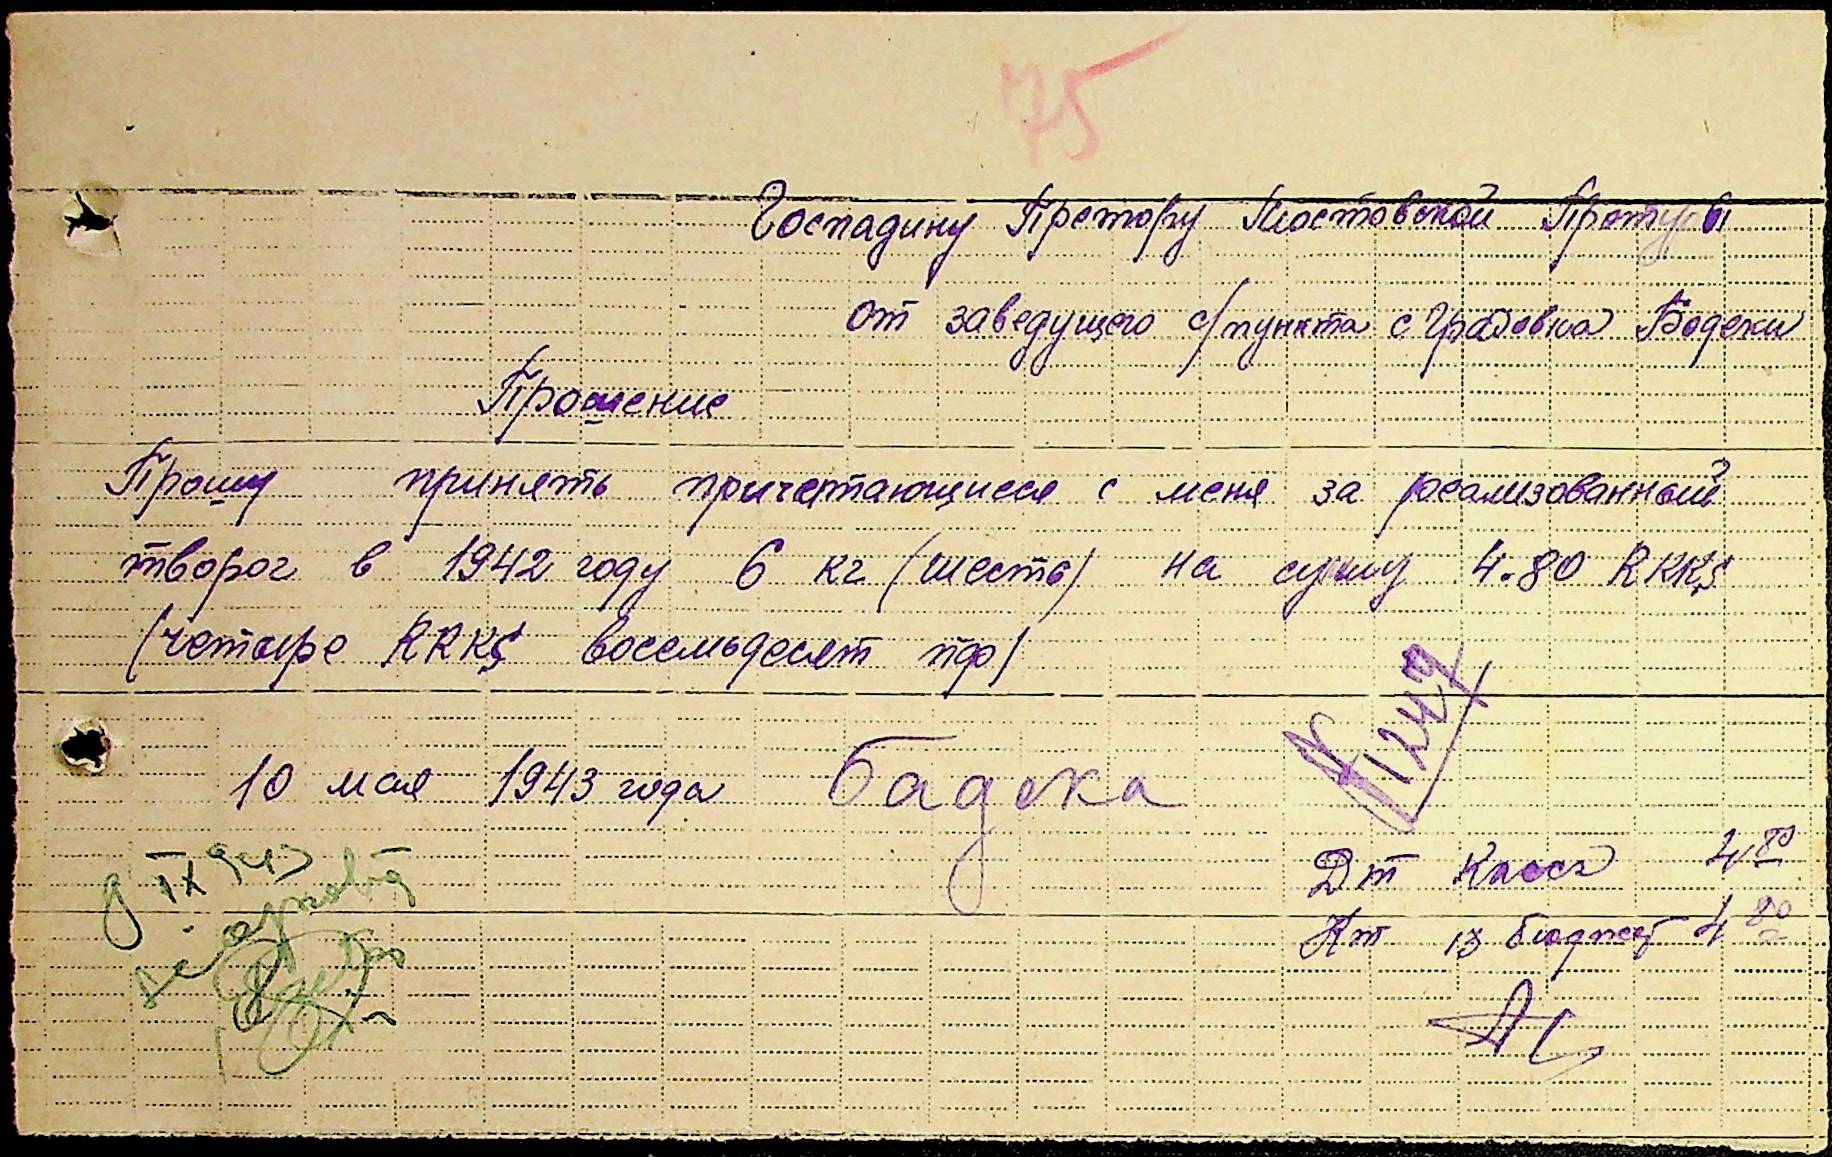 75
Госпадину Претору Мостовской Претуры
от заведущего с/пункта с Градовка Бодеки
Прошение
Прошу принять причетающиеся с меня за реализованный
творог в 1942 году 6 кг (шесть) на сумму 4.80 RKKS
(четыре RKKS восемьдесят пф)
N 1249
10 мая 1943 года Бадека
Дт Касса 4 80
Кт из бюджет 4 80